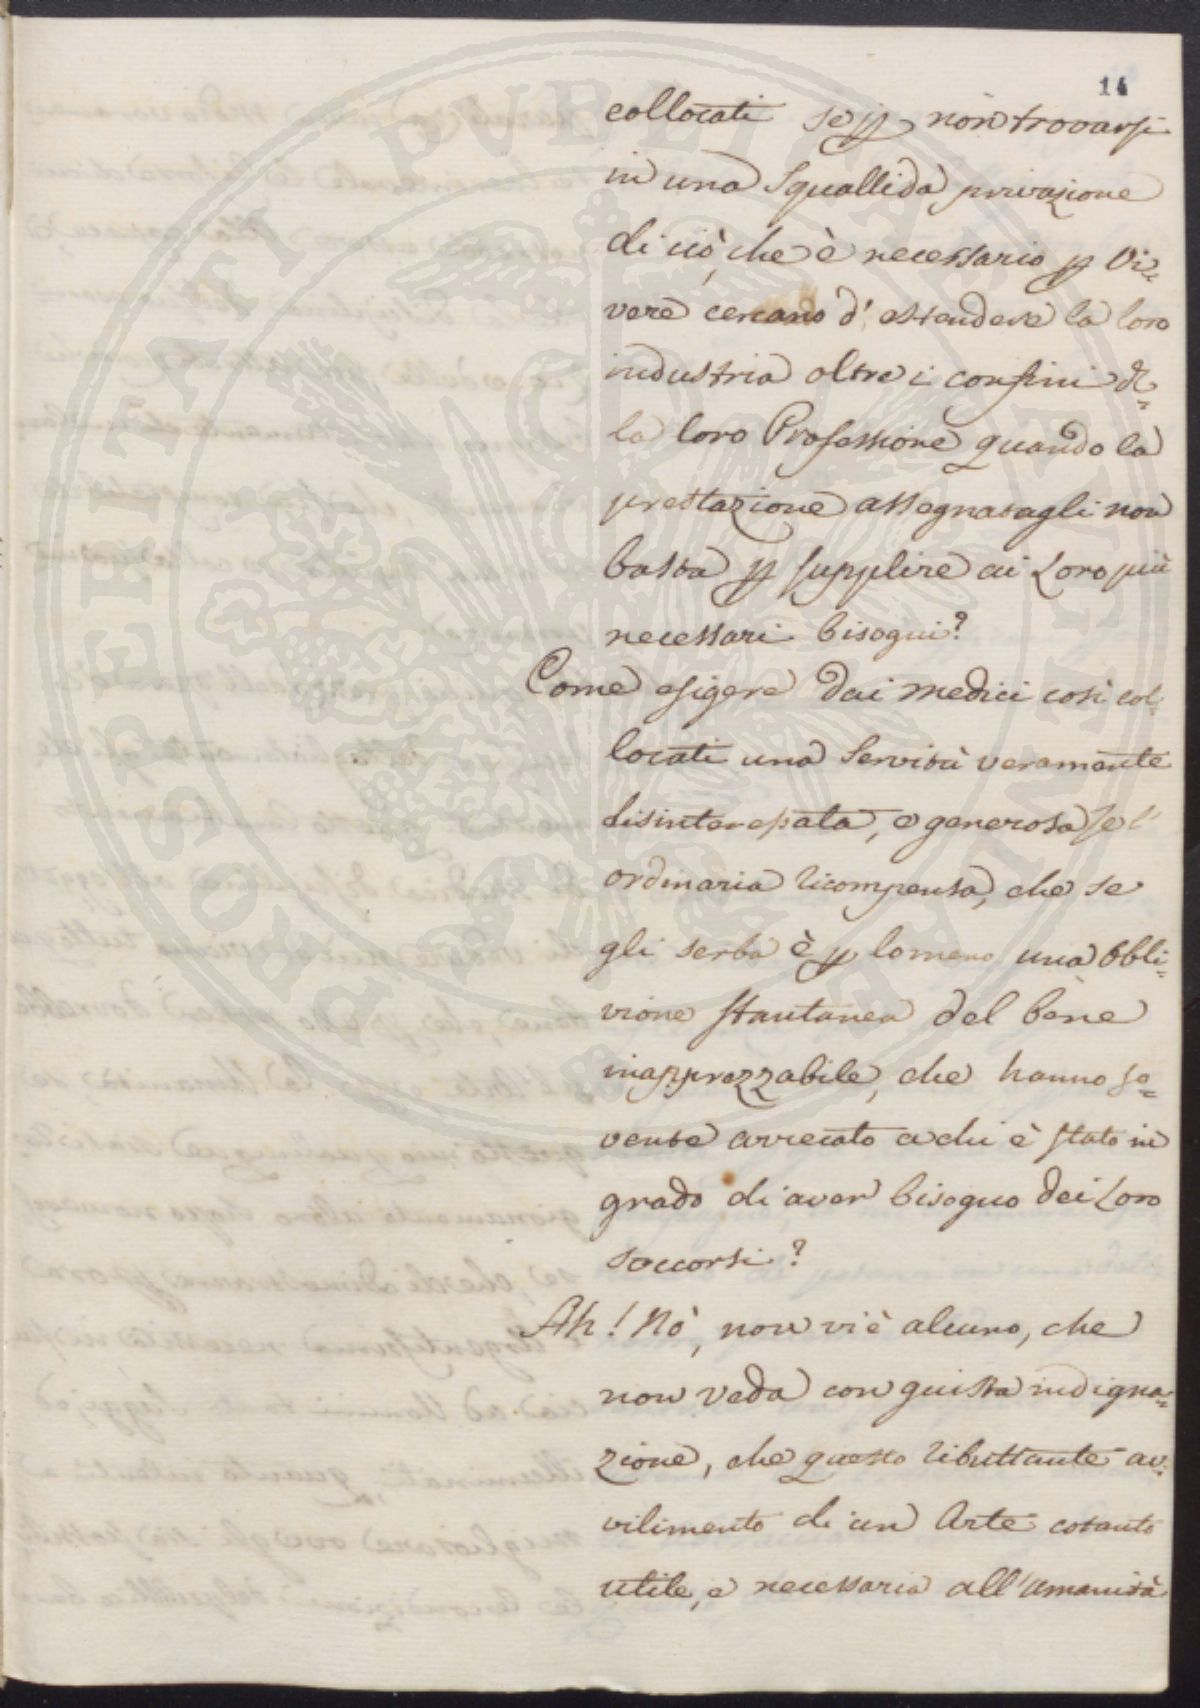 14
collocati se p non trovarsi
in una Squallida privazione
di ciò, che è necessario p Vi=
vere cercano d'estendere la loro
industria oltre i confini de=
la loro Professione quando la
prestazione assegnatagli non
basta p supplire ai Loro più
necessari bisogni?
Come esigere dai medici così col=
locati una Servitù veramente
disinteressata, e generosa se l'
ordinaria ricompensa, che se
gli serba è p lomeno una obbli=
vione stantanea del bene
inapprezzabile, che hanno so=
vente arrecato a chi è stato in
grado di aver bisogno dei Loro
soccorsi?
Ah! Nò, non vi è alcuno, che
non veda con guista indigna=
zione, che questo ributtante av=
vilimento di un Arte cotanto
utile, e necessaria all'umanità
PROSPERITATI PUBLICAE